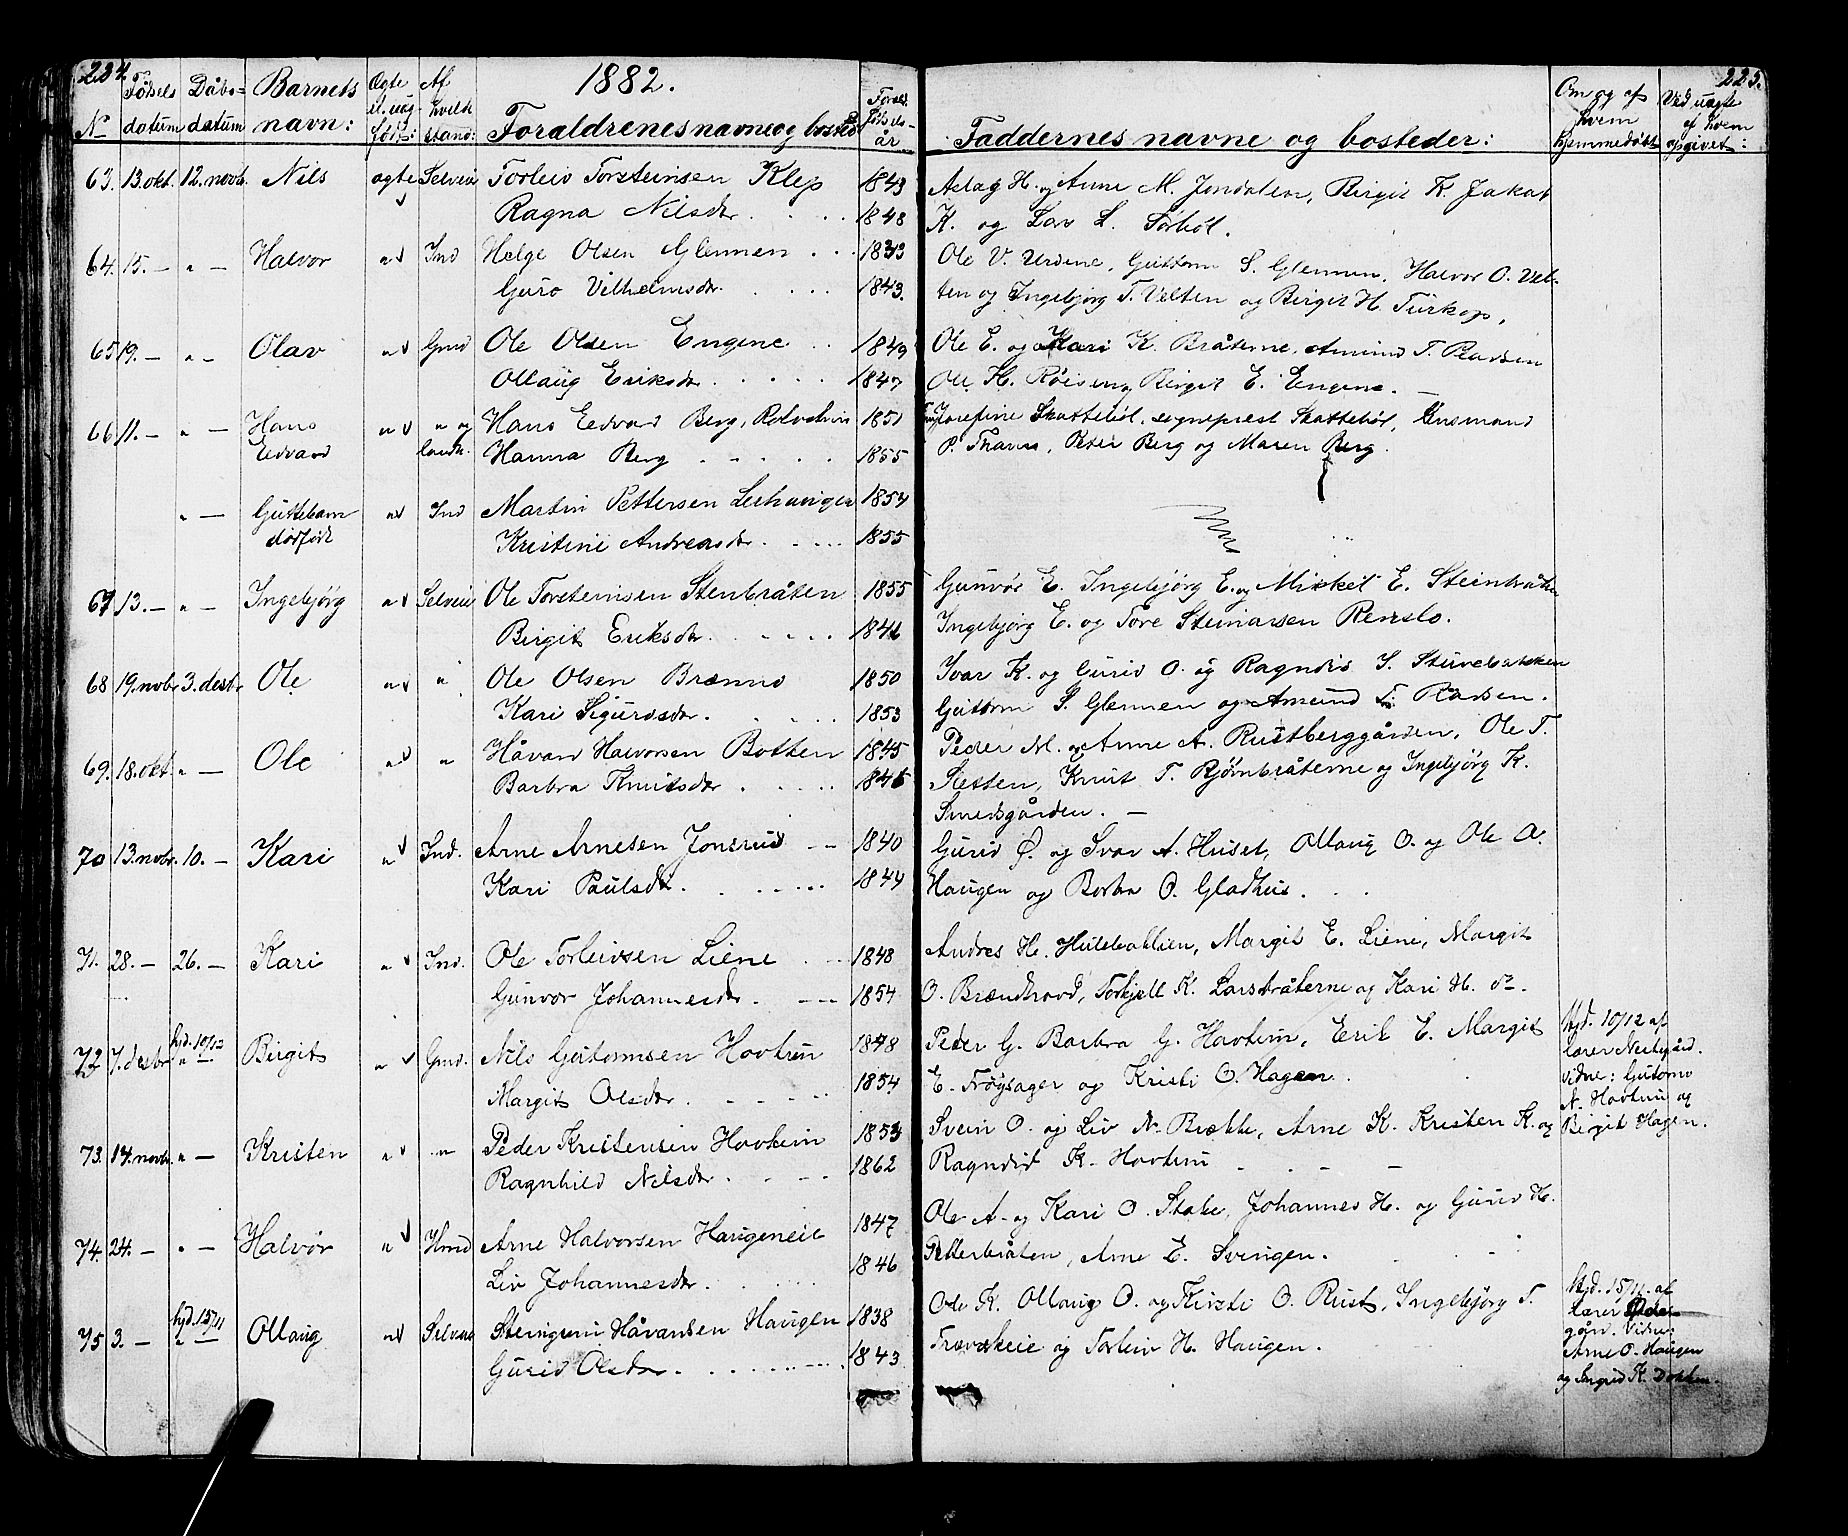 1882.
Fødsels Dåbs= Barnets Ægte Af
No datum datum navn: Foraldrenes navne og bosted år
63. 13. okt. 12. novb. Nils ægte Selveier Torleiv Torsteinsen Klep 1843
Ragna Nilsdr. 1848
64. 15. — " — Halvor " Ind Helge Olsen Glennen 1833
Guro Vilhelmsdr. 1843.
65 19. — " — Olav " Gmd Ole Olsen Engene 1849
Ollaug Eriksdr. 1847
66 11. — " — Hans " " og Hans Edvard Berg, 1851
Edvard landh. Hanna Berg 1855
" — Guttebarn " Ind Martin Pettersen 1854
dødfødt Kristine Andreasdr. 1855
67 13. — " — Ingebjørg " Selveier Ole Torsteinsen Stenbråten 1855
Birgit Eriksdr.
68 19. novbr. 3. desbr Ole " " Ole Olsen Brenno 1850
Kari Sigurdsdr. 1853
69. 18. okt. " — Ole " " Håvard Halvorsen Botten 1845
Barbra Knutsdr
70 13. novbr. 10. — Kari " Ind. Arne Arnesen Jonsrud 1840
Kari Paulsdr. 1844
71. 28. — 26. — Kari " Ind. Ole Torleivsen Liene 1848
Gunvor Johannesdr. 1854
72 7. desbr hjd. 10/12 " — Birgit " Gmd. Nils Gutormsen Hovtun 1848
Margit Olsdr. 1854
73. 14. novb. " — Kristen " " Peder Kristensen Hovtun 1853
Ragnhild Nilsdr. 1862
74. 24. — " — Halvor " Hmd Arne Halvorsen Haugeneie 1847
Liv Johannesdr. 1846
75 3. — hjd. 15/11 " Ollaug " Selveier Steingrim Håvardsen Haugen 1838
Gurid Olsdr. 1843
225.
Faddernes navne og bosteder: Om og af hvem hjemmedøbt Ved uægte af hvem opgivet:
Aslag H. og Anne M. Jondalen, Birgit K. Jakob
K. og Lars L. Sørbøl.
Ole V. Urdene, Guttorm S. Glennen, Halvor O. Vel-
ten og Ingebjørg T. Velten og Birgit H. Turkop.
Ole E. og Kari K. Bråterne, Amund T. Plassen
Ole H. Birgit E. Engene. —
Josefine Skattebøl, sogneprest Skattebøl, Lensmand
P. Peter Berg og Maren Berg.
Gunvor E. Ingebjørg E. og Mikkel E. Steinbråten
Ingebjørg E. og Tore Steinarsen Renslo.
Ivar K. og Gurid O. og Ragndis S. Stuvebakken
Guttorm S. Glennen og Amund T. Plassen.
Peder M. og Anne A. Rustberggården, Ole T.
Sletten, Knut T. Bjørnbråterne og Ingebjørg K.
Smedsgården. —
Gurid Ø. og Ivar A. Huset, Ollaug O. og Ole O.
Haugen og Barbra O. Gladhus.
Andres H. Hullebakken, Margit E. Liene, Margit
O. Brændhovd, Torkjell K. Larsbråterne og Kari H. do.
Peder G. Barbra G. Hovtun, Erik E. Margit
E. Trøgsager og Kristi O. Hagen.
Hjd. 10/12 af
lærer Nestegård.
Vidne: Gutorm
N. Hovtun og
Birgit Hagen.
Svein O. og Liv N. Brække, Arne K. Kristen K. og
Ragndid K. Hovtun
Ole A. og Kari O. Stake, Johannes H. og Gurid H.
Petterbråten, Arne E. Svingen.
Ole K. Ollaug O. og Kirsti O. Rust, Ingebjørg T.
Trøvskeie og Torleiv H. Haugen.
Hjd. 15/11. af
lærer
gård. Vidne:
Arne O. Haugen
og Ingrid K. Dokken.